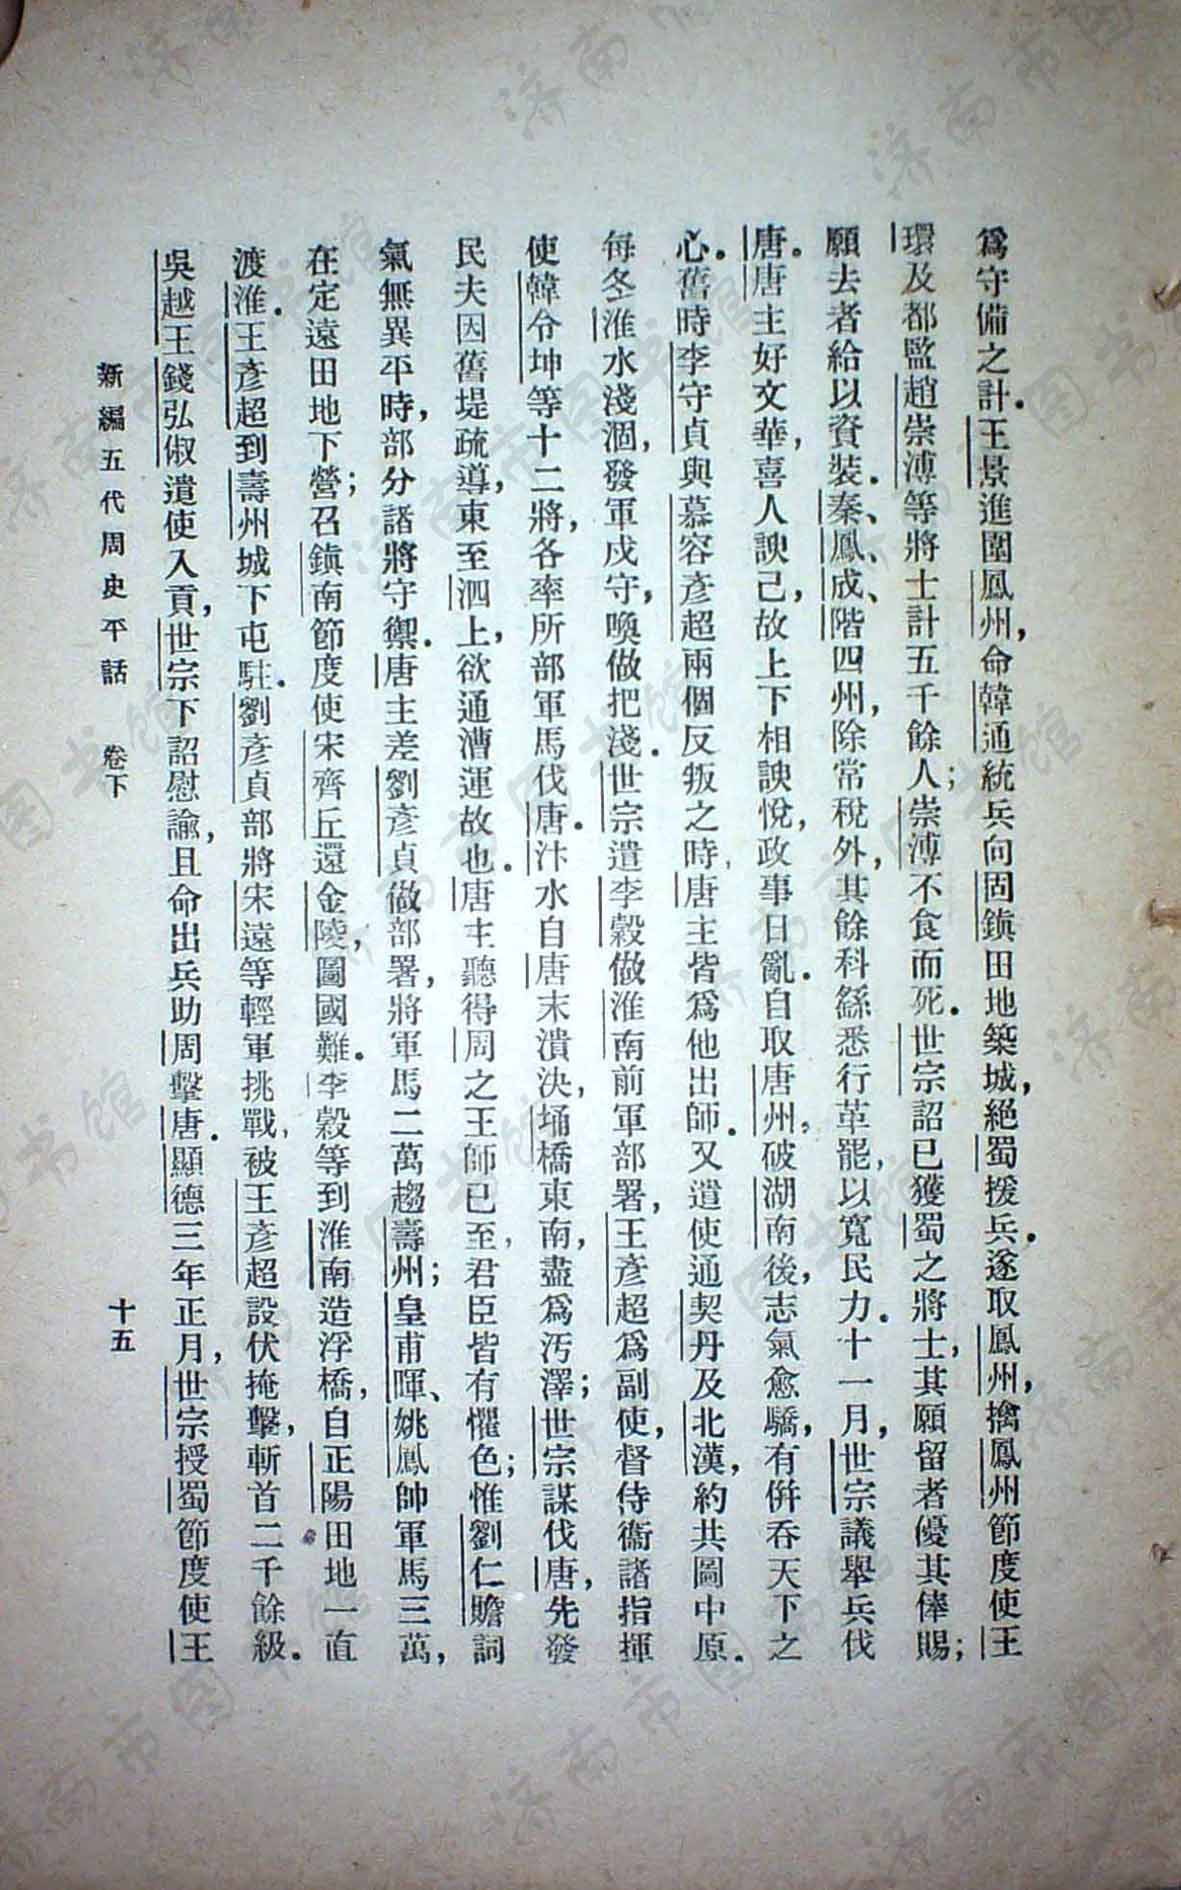 爲守備之計．王景進圍鳳州，命韓通統兵向固鎮田地築城，絕蜀援兵．遂取鳳州，擒鳳州節度使王
環及都監趙崇溥等將士計五千餘人；崇溥不食而死．世宗詔已獲蜀之將士，其願留者優其俸賜；
願去者給以資裝．秦、鳳、成、階四州，除常稅外，其餘科繇悉行革罷，以寬民力．十一月，世宗議舉兵伐
唐．唐主好文華，喜人諛己，故上下相諛悅，政事日亂．自取唐州，破湖南後，志氣愈驕，有倂吞天下之
心．舊時李守貞與慕容彥超兩個反叛之時，唐主皆爲他出師．又遣使通契丹及北漢，約共圖中原．
每冬淮水淺涸，發軍戍守，喚做把淺．世宗遣李穀做淮南前軍部署，王彥超爲副使，督侍衞諸指揮
使韓令坤等十二將，各率所部軍馬伐唐．汴水自唐末潰決，埇橋東南，盡爲汚澤；世宗謀伐唐，先發
民夫因舊堤疏導，東至泗上，欲通漕運故也．唐主聽得周之王師已至，君臣皆有懼色；惟劉仁贍詞
氣無異平時，部分諸將守禦．唐主差劉彥貞做部署，將軍馬二萬趨壽州；皇甫暉、姚鳳帥軍馬三萬，
在定遠田地下營；召鎮南節度使宋齊丘還金陵，圖國難．李穀等到淮南造浮橋，自正陽田地一直
渡淮．王彥超到壽州城下屯駐．劉彥貞部將宋遠等輕軍挑戰，被王彥超設伏掩擊，斬首二千餘級．
吳越王錢弘俶遣使入貢，世宗下詔慰諭，且命出兵助周擊唐．顯德三年正月，世宗授蜀節度使王
新編五代周史平話　卷下　十五
济南市图书馆